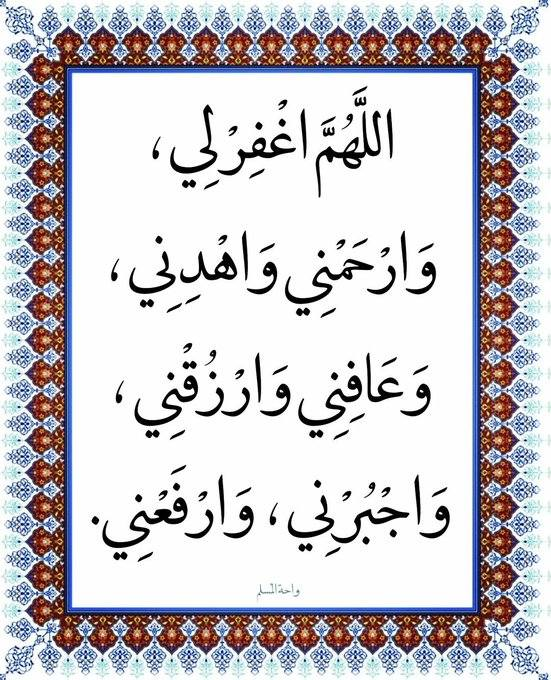 اللَّهُمَّ اغْفِرْ لِي ،
وَارْحَمْنِي وَاهْدِنِي ،
وَعَافِنِي وَارْزُقْنِي ،
وَاجْبُرْنِي ، وَارْفَعْنِي .
واحة المسلم